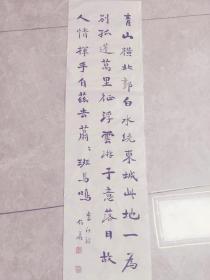 青山橫北郭白水繞東城此地一為
別孤蓬萬里征浮雲游子意落日故
人情揮手自茲去蕭〻班馬鳴